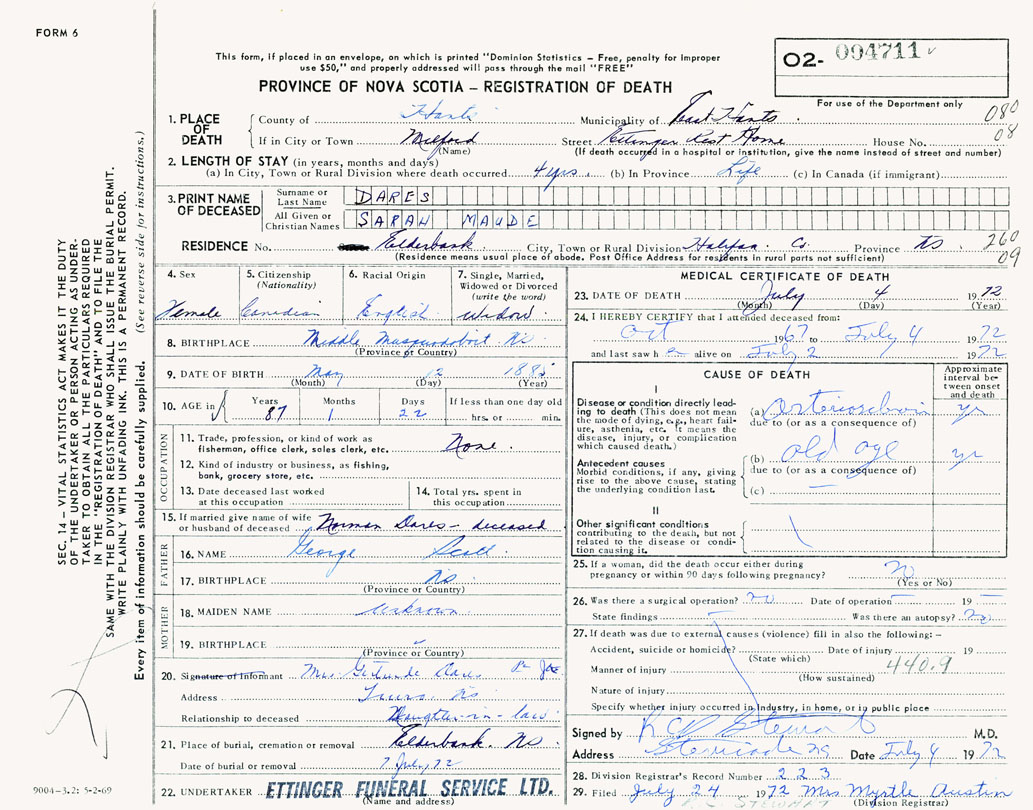 FORM 6
This form, if placed in an envelope, on which is printed "Dominion Statistics – Free, penalty for Improper
use $50," and properly addressed will pass through the mail "FREE"
O2- 094711
PROVINCE OF NOVA SCOTIA – REGISTRATION OF DEATH
For use of the Department only
1. PLACE OF DEATH
County of Hants Municipality of East Hants 080
If in City or Town Milford Street Ettinger Rest Home House No. 08
(Name) (If death occurred in a hospital or institution, give the name instead of street and number)
2. LENGTH OF STAY (in years, months and days)
(a) In City, Town or Rural Division where death occurred 4 yrs. (b) In Province Life (c) In Canada (if immigrant)
3. PRINT NAME OF DECEASED
Surname or Last Name DARES
All Given or Christian Names SARAH MAUDE
RESIDENCE No. Elderbank City, Town or Rural Division Halifax Co. Province NS 260
09
(Residence means usual place of abode. Post Office Address for residents in rural parts not sufficient)
4. Sex
Female
5. Citizenship (Nationality)
Canadian
6. Racial Origin
English
7. Single, Married, Widowed or Divorced (write the word)
Widow
8. BIRTHPLACE Middle Musquodoboit NS
(Province or Country)
9. DATE OF BIRTH May 12 1885
(Month) (Day) (Year)
10. AGE in
Years Months Days If less than one day old
87 1 22 hrs. or min.
OCCUPATION
11. Trade, profession, or kind of work as
fisherman, office clerk, sales clerk, etc. None
12. Kind of industry or business, as fishing,
bank, grocery store, etc.
13. Date deceased last worked
at this occupation
14. Total yrs. spent in
this occupation
15. If married give name of wife
or husband of deceased Norman Dares – deceased
FATHER
16. NAME George Scott
17. BIRTHPLACE NS
(Province or Country)
MOTHER
18. MAIDEN NAME Unknown
19. BIRTHPLACE
(Province or Country)
20. Signature of Informant Mrs. Gertrude Dares
Address Truro, NS
Relationship to deceased Daughter-in-law
21. Place of burial, cremation or removal Elderbank, NS
Date of burial or removal 7 July 72
22. UNDERTAKER ETTINGER FUNERAL SERVICE LTD.
(Name and address)
MEDICAL CERTIFICATE OF DEATH
23. DATE OF DEATH July 4 1972
(Month) (Day) (Year)
24. I HEREBY CERTIFY that I attended deceased from:
Oct 1967 to July 4 1972
and last saw her alive on July 2 1972
CAUSE OF DEATH
Approximate
interval be-
tween onset
and death
I
Disease or condition directly lead-
ing to death (This does not mean
the mode of dying, e.g., heart fail-
ure, asthenia, etc. It means the
disease, injury, or complication
which caused death.)
(a) yr
due to (or as a consequence of)
Antecedent causes
Morbid conditions, if any, giving
rise to the above cause, stating
the underlying condition last.
(b) old age yr
due to (or as a consequence of)
(c)
II
Other significant conditions
contributing to the death, but not
related to the disease or condi-
tion causing it.
25. If a woman, did the death occur either during
pregnancy or within 90 days following pregnancy? No
(Yes or No)
26. Was there a surgical operation? no Date of operation 19
State findings Was there an autopsy? no
27. If death was due to external causes (violence) fill in also the following: –
Accident, suicide or homicide? Date of injury 19
(State which)
Manner of injury 440.9
(How sustained)
Nature of injury
Specify whether injury occurred in industry, in home, or in public place
Signed by Stewart M.D.
Address Date July 4 1972
28. Division Registrar's Record Number 223
29. Filed July 24 1972 Mrs Myrtle Austin
STEWART (Division Registrar)
SEC. 14 – VITAL STATISTICS ACT MAKES IT THE DUTY
OF THE UNDERTAKER OR PERSON ACTING AS UNDER-
TAKER TO OBTAIN ALL THE PARTICULARS REQUIRED
IN THE "REGISTRATION OF DEATH" AND TO FILE THE
SAME WITH THE DIVISION REGISTRAR WHO SHALL ISSUE THE BURIAL PERMIT.
WRITE PLAINLY WITH UNFADING INK. THIS IS A PERMANENT RECORD.
Every item of information should be carefully supplied. (See reverse side for instructions.)
9004-3.2: 5-2-69